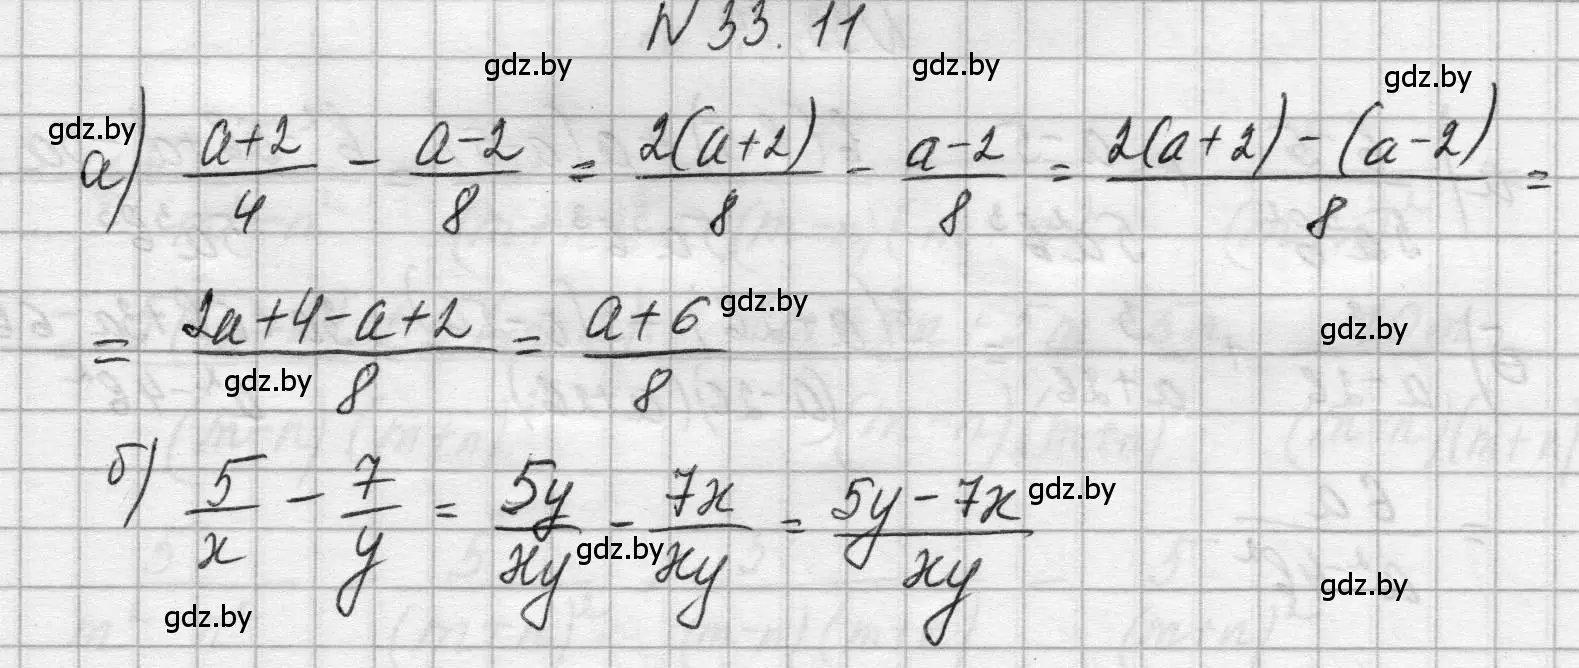 N 33.11
а) (a+2)/4 - (a-2)/8 = 2(a+2)/8 - (a-2)/8 = (2(a+2)-(a-2))/8 =
= (2a+4-a+2)/8 = (a+6)/8
б) 5/x - 7/y = 5y/xy - 7x/xy = (5y-7x)/xy
gdz.by
gdz.by
gdz.by
gdz.by
gdz.by
gdz.by
gdz.by
gdz.by
gdz.by
gdz.by
gdz.by